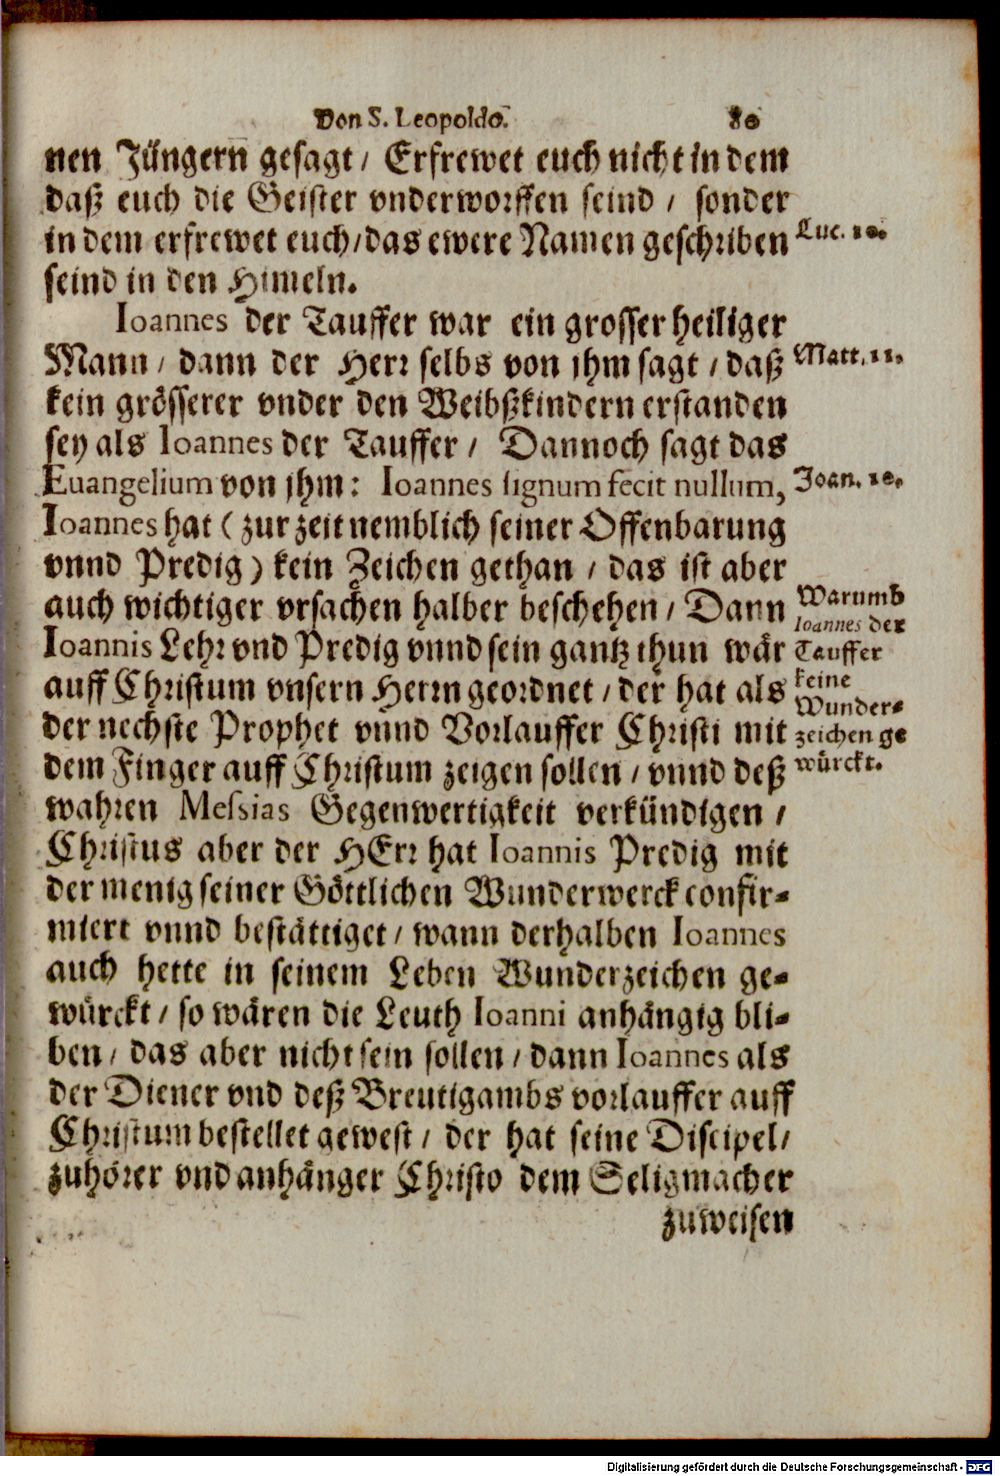 Von S. Leopoldo. 80
nen Jüngern gesagt / Erfrewet euch nicht in dem
daß euch die Geister vnderworffen seind / sonder
in dem erfrewet euch / das ewere Namen geschriben
Luc. 10.
seind in den Himeln.
Ioannes der Tauffer war ein grosser heiliger
Mann / dann der Herr selbs von jhm sagt / daß
Matt. 11.
kein grösserer vnder den Weibßkindern erstanden
sey als Ioannes der Tauffer / Dannoch sagt das
Euangelium von jhm: Ioannes signum fecit nullum,
Joan. 10.
Ioannes hat ( zur zeit nemblich seiner Offenbarung
vnnd Predig ) kein Zeichen gethan / das ist aber
auch wichtiger vrsachen halber beschehen / Dann
Ioannis Lehr vnd Predig vnnd sein gantz thun wär
auff Christum vnsern Herrn geordnet / der hat als
der nechste Prophet vnnd Vorlauffer Christi mit
dem Finger auff Christum zeigen sollen / vnnd deß
Warumb
Ioannes der
Tauffer
keine
Wunder-
zeichen ge
würckt.
wahren Messias Gegenwertigkeit verkündigen /
Christus aber der HErr hat Ioannis Predig mit
der menig seiner Göttlichen Wunderwerck confir-
miert vnnd bestättiget / wann derhalben Ioannes
auch hette in seinem Leben Wunderzeichen ge-
würckt / so wären die Leuth Ioanni anhängig bli-
ben / das aber nicht sein sollen / dann Ioannes als
der Diener vnd deß Breutigambs vorlauffer auff
Christum bestellet gewest / der hat seine Discipel /
zuhörer vnd anhänger Christo dem Seligmacher
zuweisen
Digitalisierung gefördert durch die Deutsche Forschungsgemeinschaft - DFG